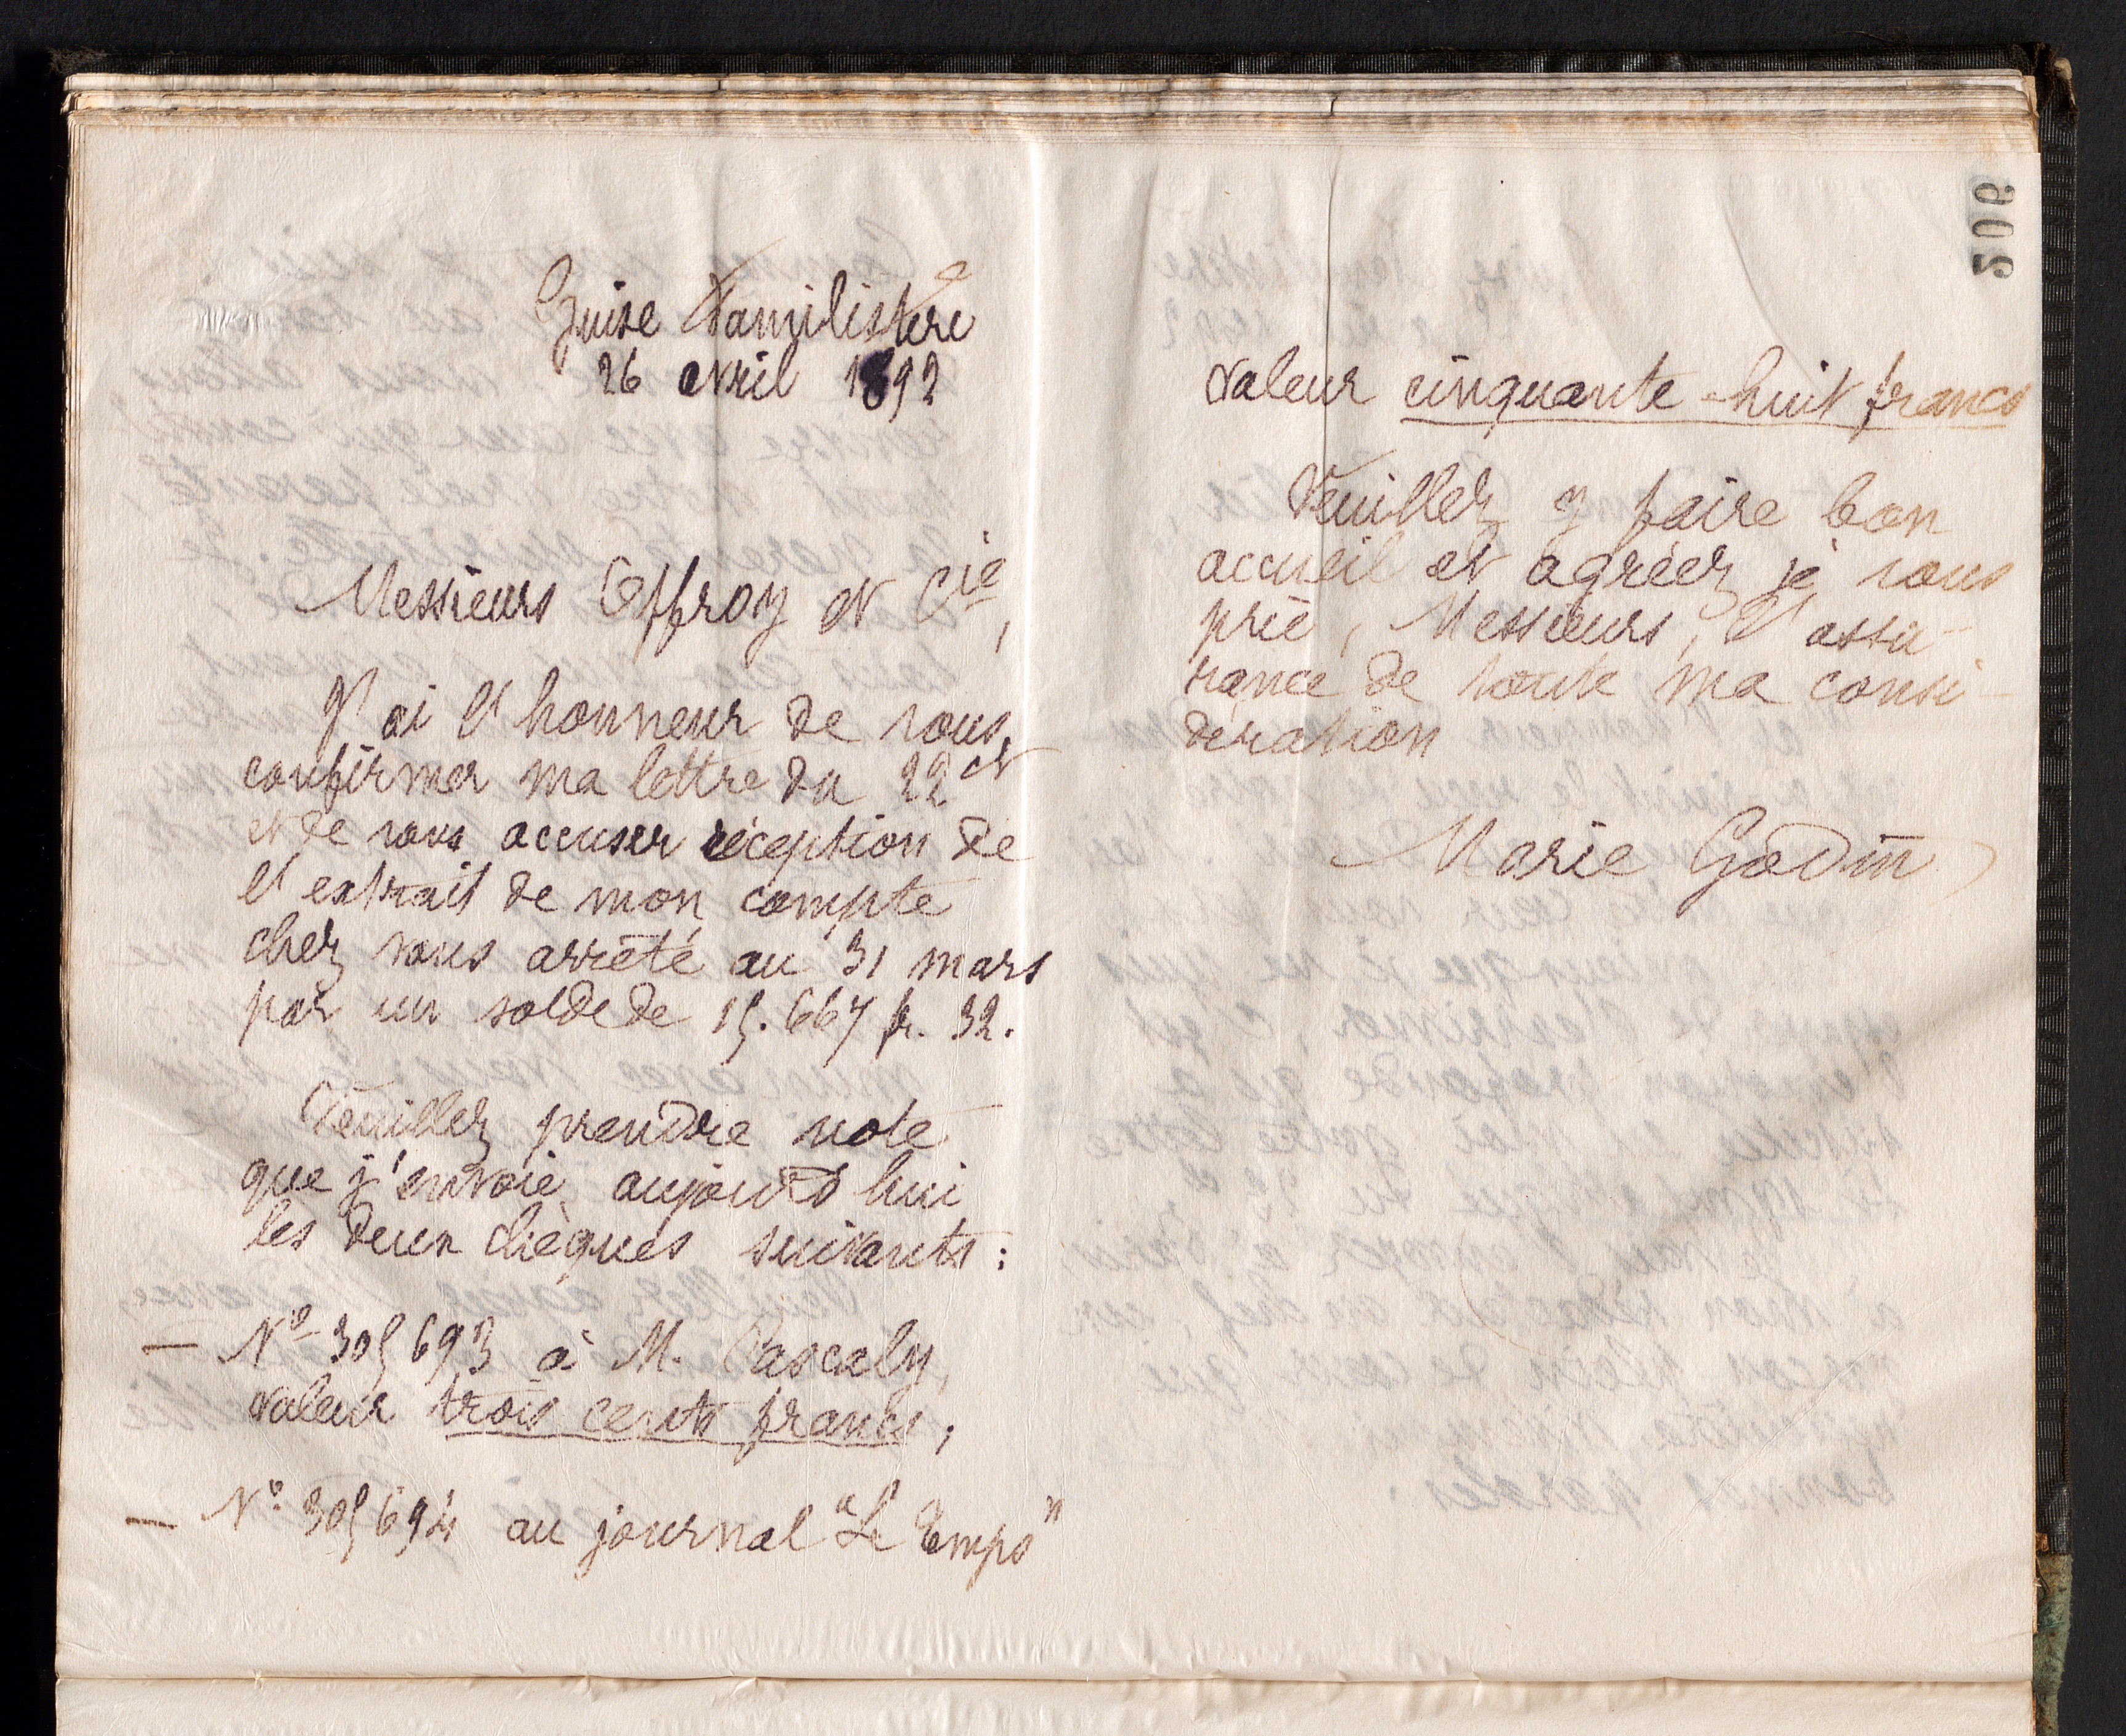 206
Guise Familistère
26 avril 1892
Messieurs Offroy et Cie,
J'ai l'honneur de vous
confirmer ma lettre du 22 ct
et de vous accuser réception de
l'extrait de mon compte
chez vous arrêté au 31 mars
par un solde de 15.667 fr. 32.
Veuillez prendre note
que j'envoie aujourd'hui
les deux chèques suivants :
— No 305693 à M. Pascaly,
valeur trois cents francs ;
— No 305694 au journal "Le Temps"
valeur cinquante-huit francs
Veuillez y faire bon
accueil et agréer, je vous
prie, Messieurs, l'assu-
rance de toute ma consi-
dération
Marie Godin